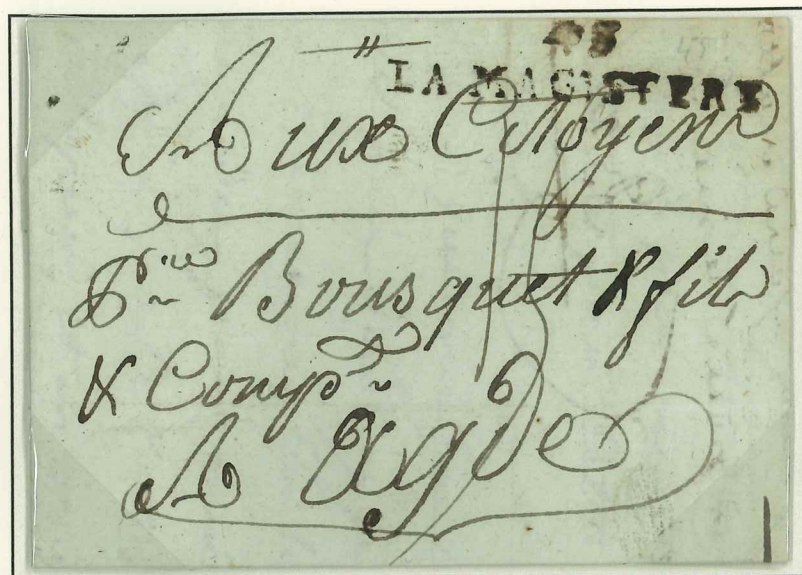 LA MAGISTERE
Aux Citoyens
Bousquet & fils
& Comp.
A Agde